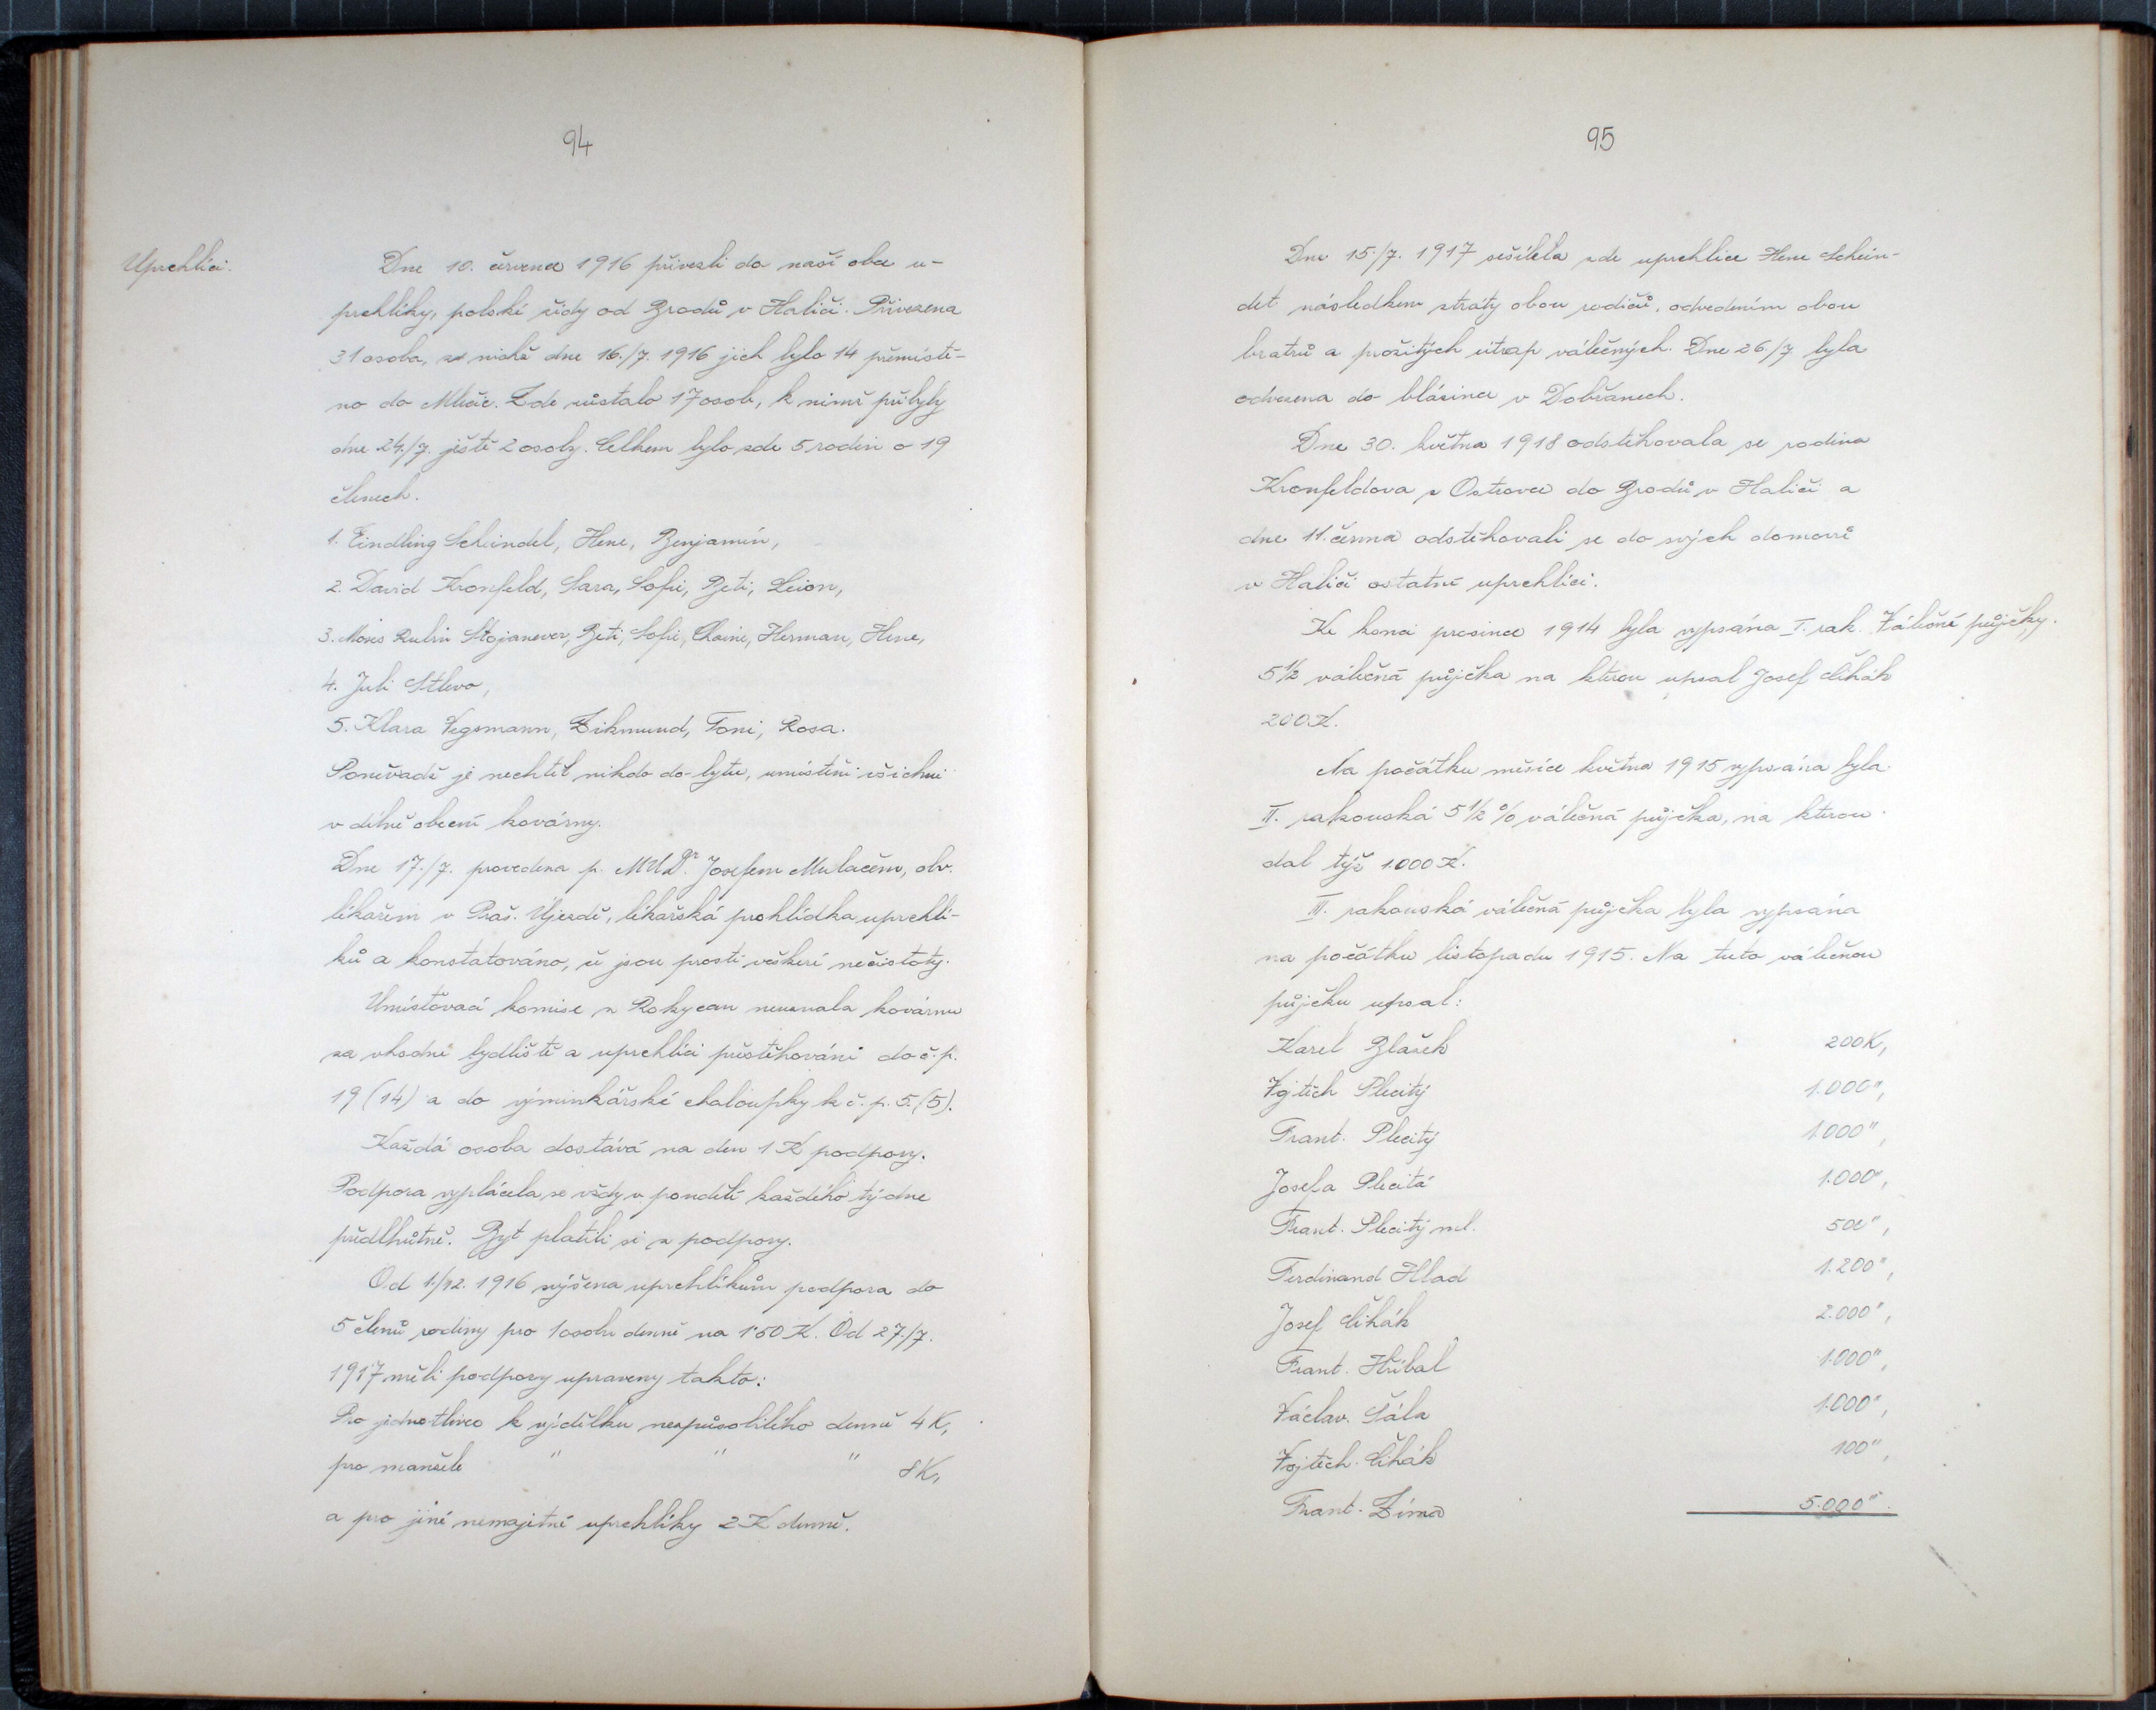 94
Uprchlíci.
Dne 10. července 1916 přivezli do naší obce u-
prchlíky, polské židy od Brodů v Haliči. Přivezena
31 osoba, z nichž dne 16./7. 1916 jich bylo 14 přemístě-
no do Mlečic. Zde zůstalo 17 osob, k nimž přibyly
dne 24./7. ještě 2 osoby. Celkem bylo zde 5 rodin o 19
členech.
1. Eindling Scheindel, Hene, Benjamin,
2. David Kronfeld, Sara, Sofie, Beti, Leion,
3. Mois Rubin Stojanever, Beti, Sofie, Chaine, Herman, Hene,
4. Juli Stlevo,
5. Klara Vegsmann, Zikmund, Toni, Rosa.
Poněvadž je nechtěl nikdo do bytu, umístěni všichni
v dílně obecní kovárny.
Dne 17./7. provedena p. MUDr. Josefem Mulačem, obv.
lékařem v Praš. Újezdě, lékařská prohlídka uprchlí-
ků a konstatováno, že jsou prosti veškeré nečistoty.
Umísťovací komise z Rokycan neuznala kovárnu
za vhodné bydliště a uprchlíci přestěhováni do č. p.
19 (14) a do výminkářské chaloupky k č. p. 5. (5).
Každá osoba dostává na den 1 K podpory.
Podpora vyplácela se vždy v pondělí každého týdne
předlhůtně. Byt platili si z podpory.
Od 1./12. 1916 zvýšena uprchlíkům podpora do
5 členů rodiny pro 1 osobu denně na 1·50 K. Od 27./7.
1917 měli podpory upraveny takto:
Pro jednotlivce k výdělku nezpůsobilého denně 4 K,
pro manžele " " " 8 K,
a pro jiné nemajetné uprchlíky 2 K denně.
95
Dne 15./7. 1917 zešílela zde uprchlice Hene Schein-
del následkem ztráty obou rodičů, odvedením obou
bratrů a prožitých útrap válečných. Dne 26./7. byla
odvezena do blázince v Dobřanech.
Dne 30. května 1918 odstěhovala se rodina
Kronfeldova z Ostrovce do Brodů v Haliči a
dne 11. června odstěhovali se do svých domovů
v Haliči ostatní uprchlíci.
Ke konci prosince 1914 byla vypsána I. rak. Válečné půjčky.
5 1/2 válečná půjčka na kterou upsal Josef Čihák
200 K.
Na počátku měsíce května 1915 vypsána byla
II. rakouská 5 1/2 % válečná půjčka, na kterou
dal týž 1000 K.
III. rakouská válečná půjčka byla vypsána
na počátku listopadu 1915. Na tuto válečnou
půjčku upsal:
Karel Blažek 200 K,
Vojtěch Plecitý 1.000",
Frant. Plecitý 1.000",
Josefa Plecitá 1.000",
Frant. Plecitý ml. 500",
Ferdinand Hlad 1.200",
Josef Čihák 2.000",
Frant. Hříbal 1.000",
Václav Šála 1.000",
Vojtěch Čihák 100",
Frant. Zíma 5.000".